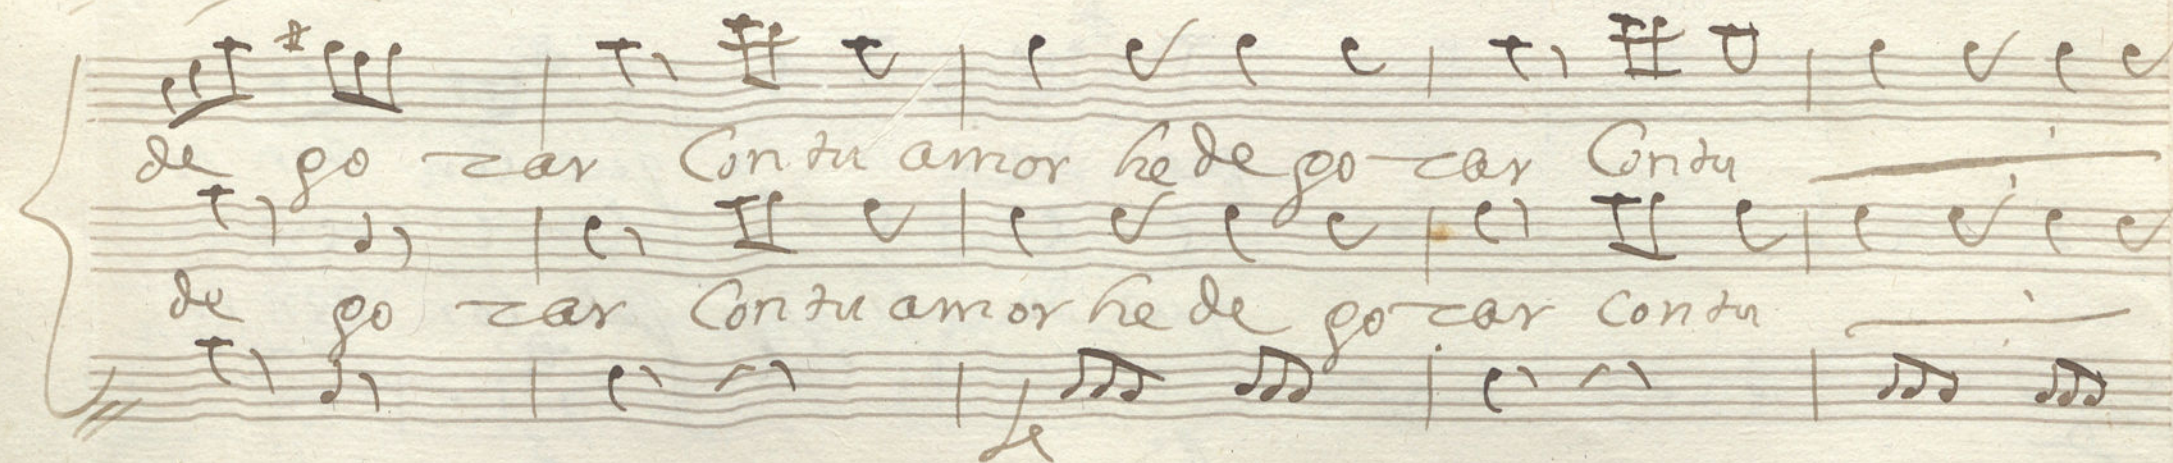 de go zar Con tu amor he de go zar Con tu
de go zar Con tu amor he de go zar con tu